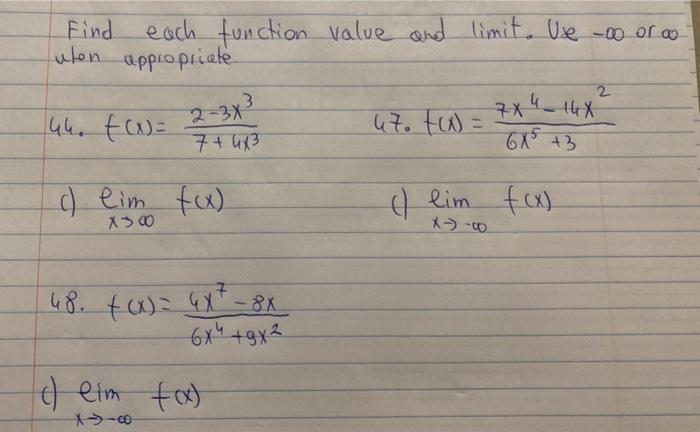 Find each function value and limit. Use -∞ or ∞
when appropriate
44. f(x) = (2-3x³)/(7+4x³)
47. f(x) = (7x⁴-14x²)/(6x⁵+3)
c) lim x→∞ f(x)
c) lim x→-∞ f(x)
48. f(x) = (4x⁷-8x)/(6x⁴+9x²)
c) lim x→-∞ f(x)